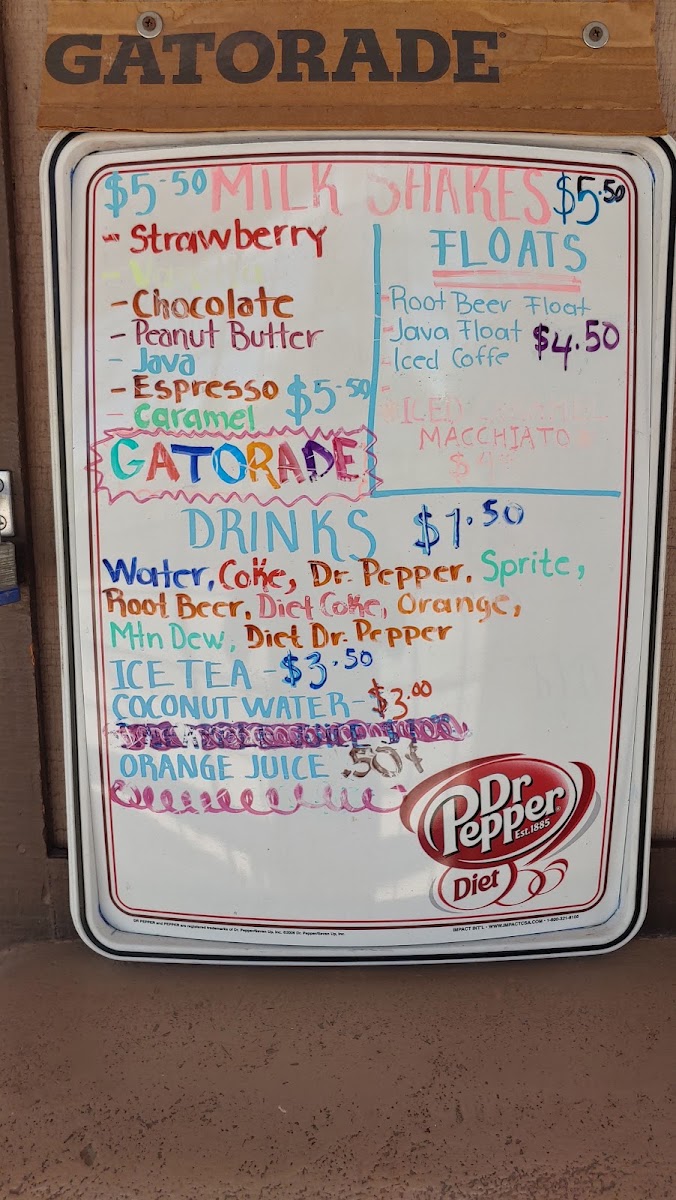 GATORADE
$5.50 MILK SHAKES $5.50
- Strawberry
- Chocolate
- Peanut Butter
- Java
- Espresso $5.50
- Caramel
FLOATS
- Root Beer Float
- Java Float $4.50
- Iced Coffe
ICED
MACCHIATO
GATORADE
DRINKS $1.50
Water, Coke, Dr. Pepper, Sprite,
Root Beer, Diet Coke, Orange,
Mtn Dew, Diet Dr. Pepper
ICE TEA - $3.50
COCONUT WATER - $3.00
ORANGE JUICE .50¢
Dr
Pepper
Est. 1885
Diet
DR PEPPER and PEPPER are registered trademarks of Dr. Pepper/Seven Up, Inc. ©2006 Dr. Pepper/Seven Up, Inc.
IMPACT INT'L • WWW.IMPACTCSA.COM • 1-800-321-8100